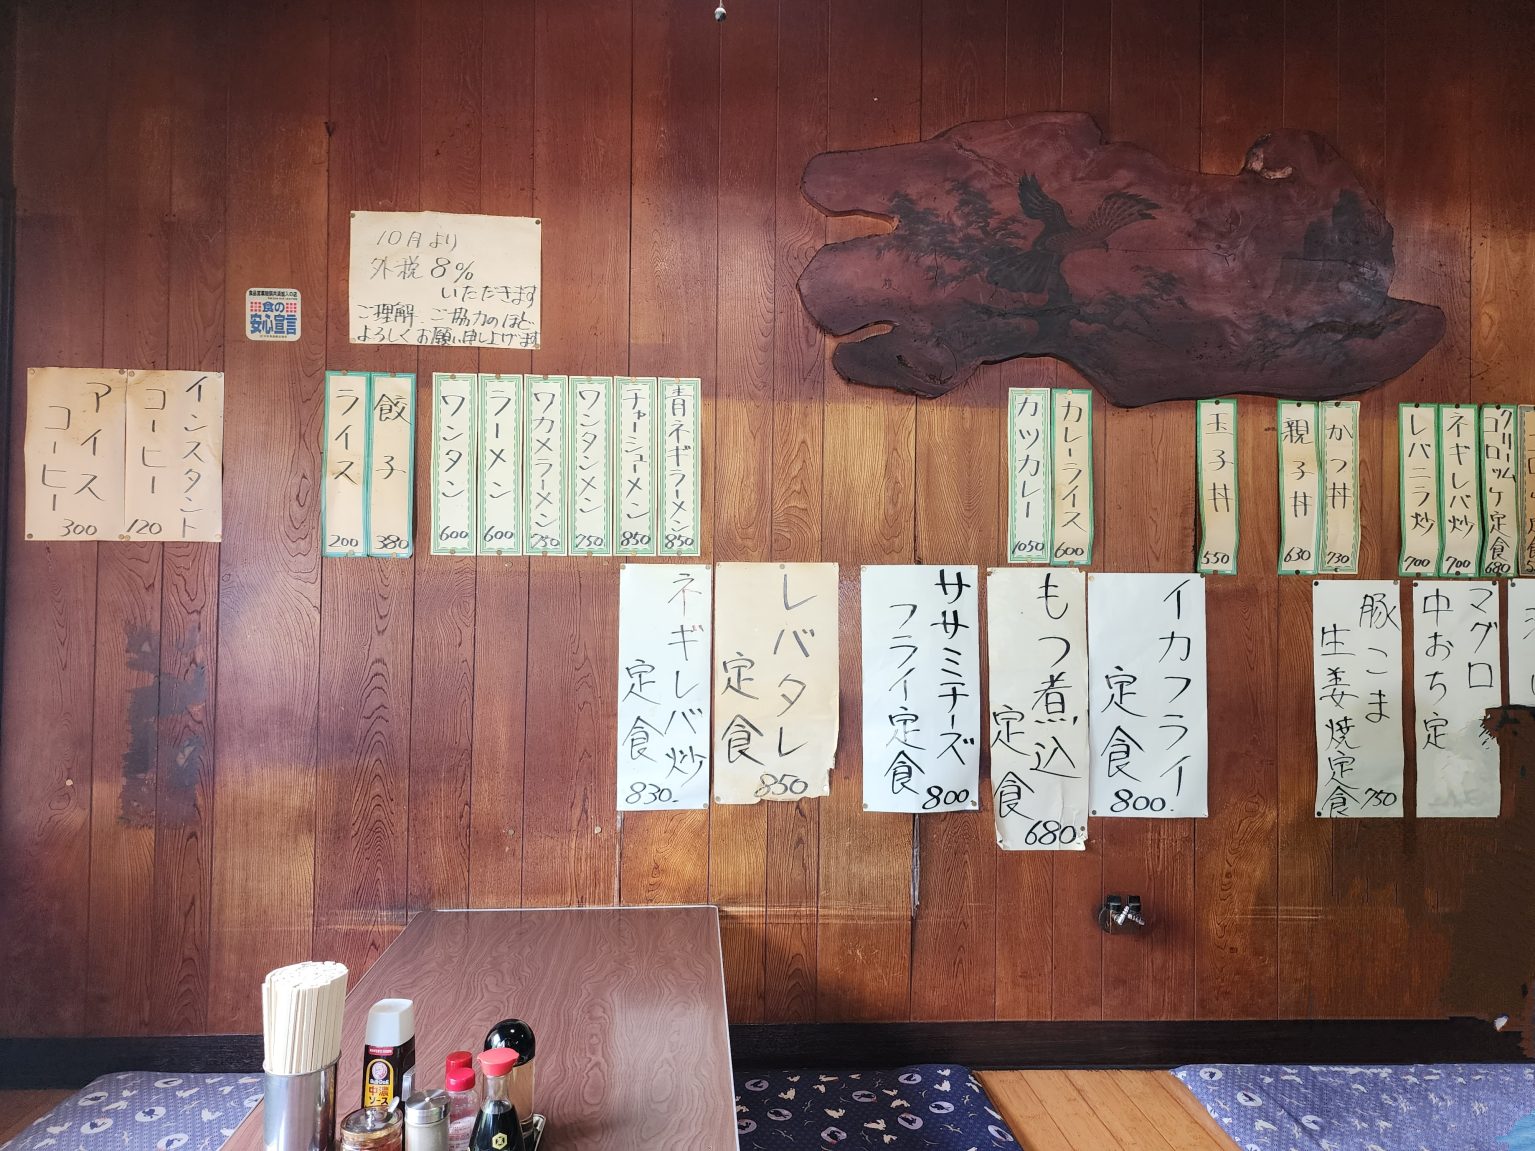 10月より
外税8%
いただきます
ご理解、ご協力のほど、
よろしくお願い申し上げます
食の
安心宣言
アイス
コーヒー
300
インスタント
コーヒー
120
ライス
200
餃子
380
ワンタン
600
ラーメン
600
ワカメラーメン
750
ワンタンメン
750
チャーシューメン
850
青ネギラーメン
850
カツカレー
1050
カレーライス
600
玉子丼
550
親子丼
630
かつ丼
730
レバニラ炒
700
ネギレバ炒
700
クリーム
コロッケ定食
680
ネギレバ炒
定食
830.
レバタレ
定食
850
ササミチーズ
フライ定食
800.
もつ煮込
定食
680.
イカフライ
定食
800.
豚こま
生姜焼定食
750
マグロ
中おち定
中濃
ソース